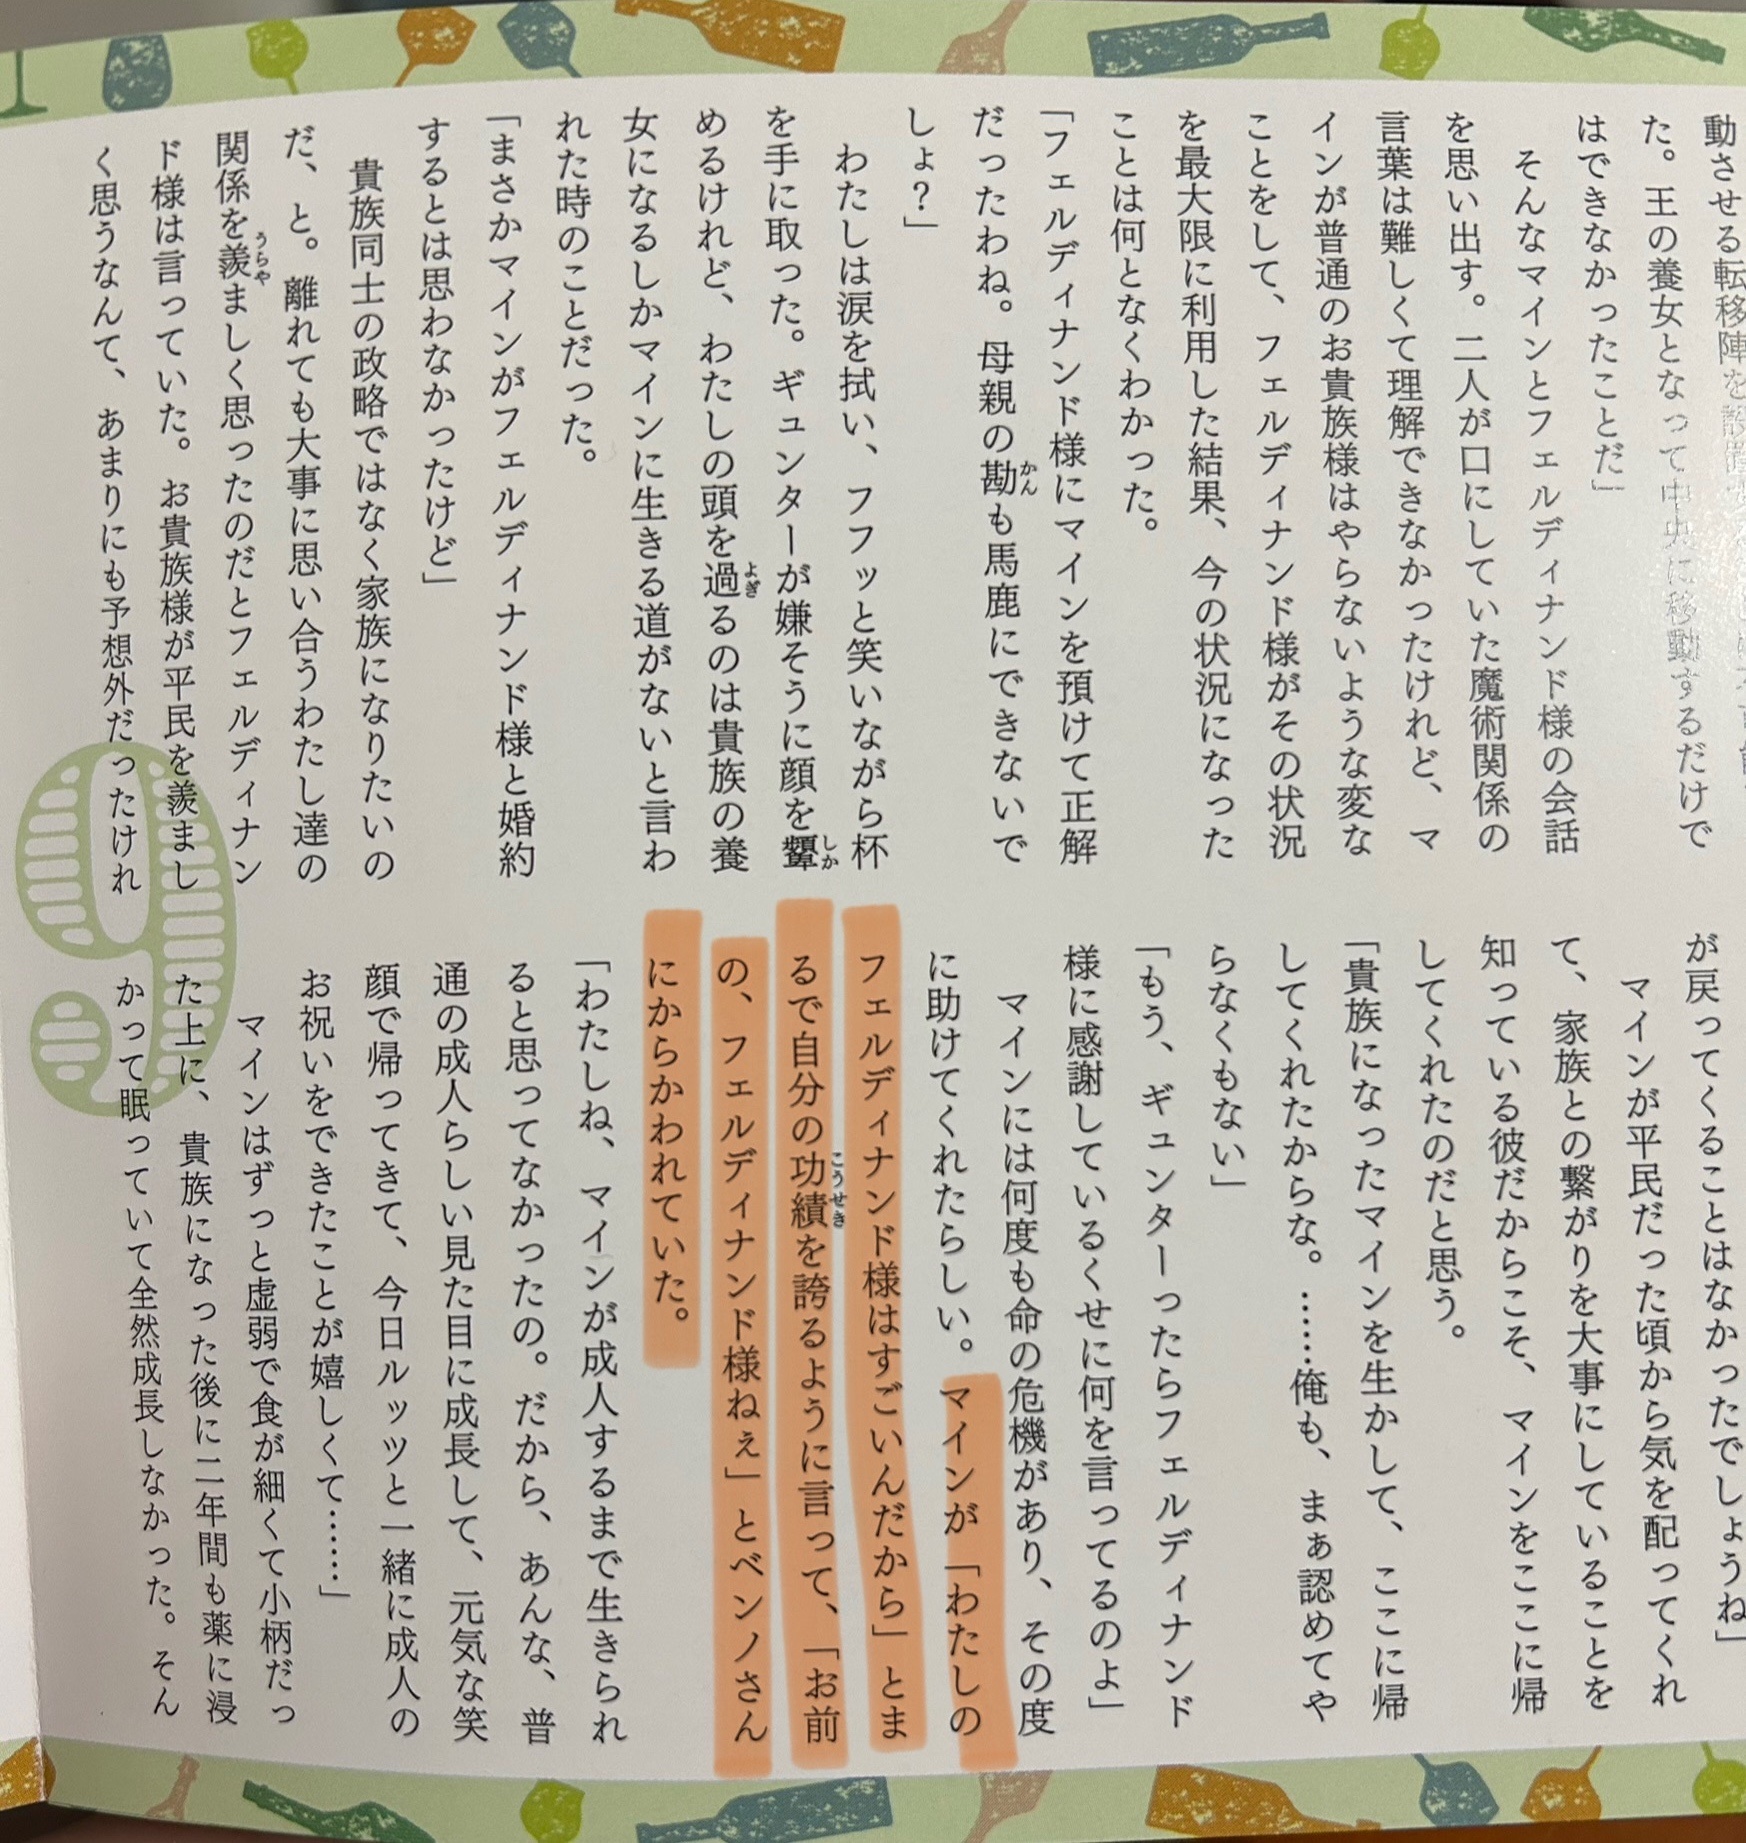 動させる転移陣を設置
た。王の養女となって中央に移動するだけで
はできなかったことだ」
そんなマインとフェルディナンド様の会話
を思い出す。二人が口にしていた魔術関係の
言葉は難しくて理解できなかったけれど、マ
インが普通のお貴族様はやらないような変な
ことをして、フェルディナンド様がその状況
を最大限に利用した結果、今の状況になった
ことは何となくわかった。
「フェルディナンド様にマインを預けて正解
だったわね。母親の勘も馬鹿にできないで
しょ？」
わたしは涙を拭い、フフッと笑いながら杯
を手に取った。ギュンターが嫌そうに顔を顰
めるけれど、わたしの頭を過るのは貴族の養
女になるしかマインに生きる道がないと言わ
れた時のことだった。
「まさかマインがフェルディナンド様と婚約
するとは思わなかったけど」
貴族同士の政略ではなく家族になりたいの
だ、と。離れても大事に思い合うわたし達の
関係を羨ましく思ったのだとフェルディナン
ド様は言っていた。お貴族様が平民を羨まし
く思うなんて、あまりにも予想外だったけれ
が戻ってくることはなかったでしょうね」
マインが平民だった頃から気を配ってくれ
て、家族との繋がりを大事にしていることを
知っている彼だからこそ、マインをここに帰
してくれたのだと思う。
「貴族になったマインを生かして、ここに帰
してくれたからな。……俺も、まぁ認めてや
らなくもない」
「もう、ギュンターったらフェルディナンド
様に感謝しているくせに何を言ってるのよ」
マインには何度も命の危機があり、その度
に助けてくれたらしい。マインが「わたしの
フェルディナンド様はすごいんだから」とま
るで自分の功績を誇るように言って、「お前
の、フェルディナンド様ねぇ」とベンノさん
にからかわれていた。
「わたしね、マインが成人するまで生きられ
ると思ってなかったの。だから、あんな、普
通の成人らしい見た目に成長して、元気な笑
顔で帰ってきて、今日ルッツと一緒に成人の
お祝いをできたことが嬉しくて……」
マインはずっと虚弱で食が細くて小柄だっ
た上に、貴族になった後に二年間も薬に浸
かって眠っていて全然成長しなかった。そん
9